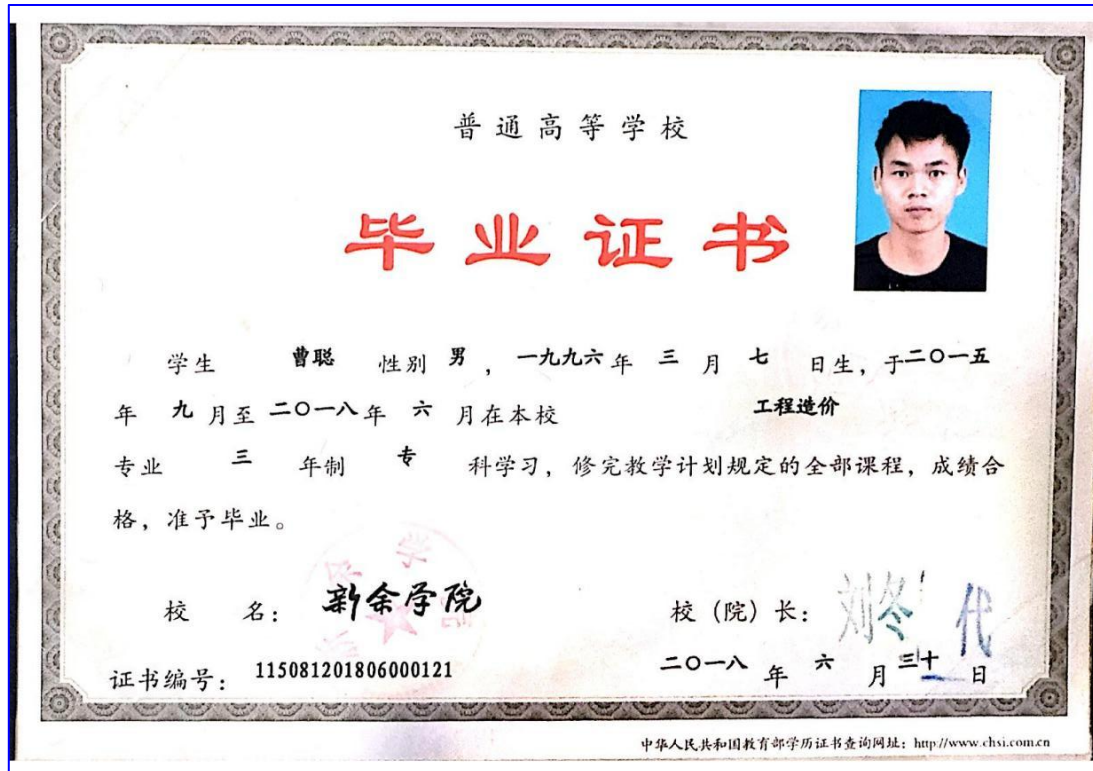 普通高等学校
毕业证书
学生 曹聪 性别 男，一九九六年 三 月 七 日生，于二〇一五
年 九 月至 二〇一八年 六 月在本校 工程造价
专业 三 年制 专 科学习，修完教学计划规定的全部课程，成绩合
格，准予毕业。
校 名： 新余学院 校（院）长：
证书编号： 115081201806000121 二〇一八 年 六 月 三十 日
中华人民共和国教育部学历证书查询网址：http://www.chsi.com.cn